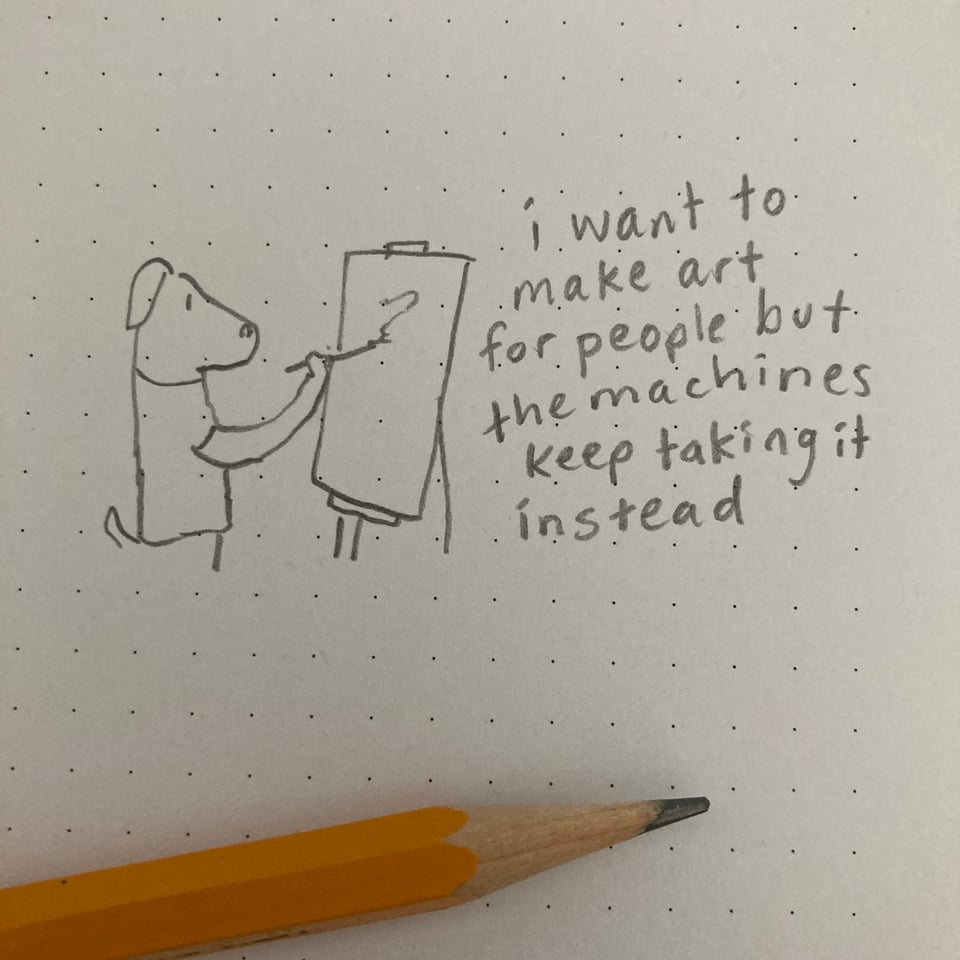 i want to
make art
for people but
the machines
keep taking it
instead